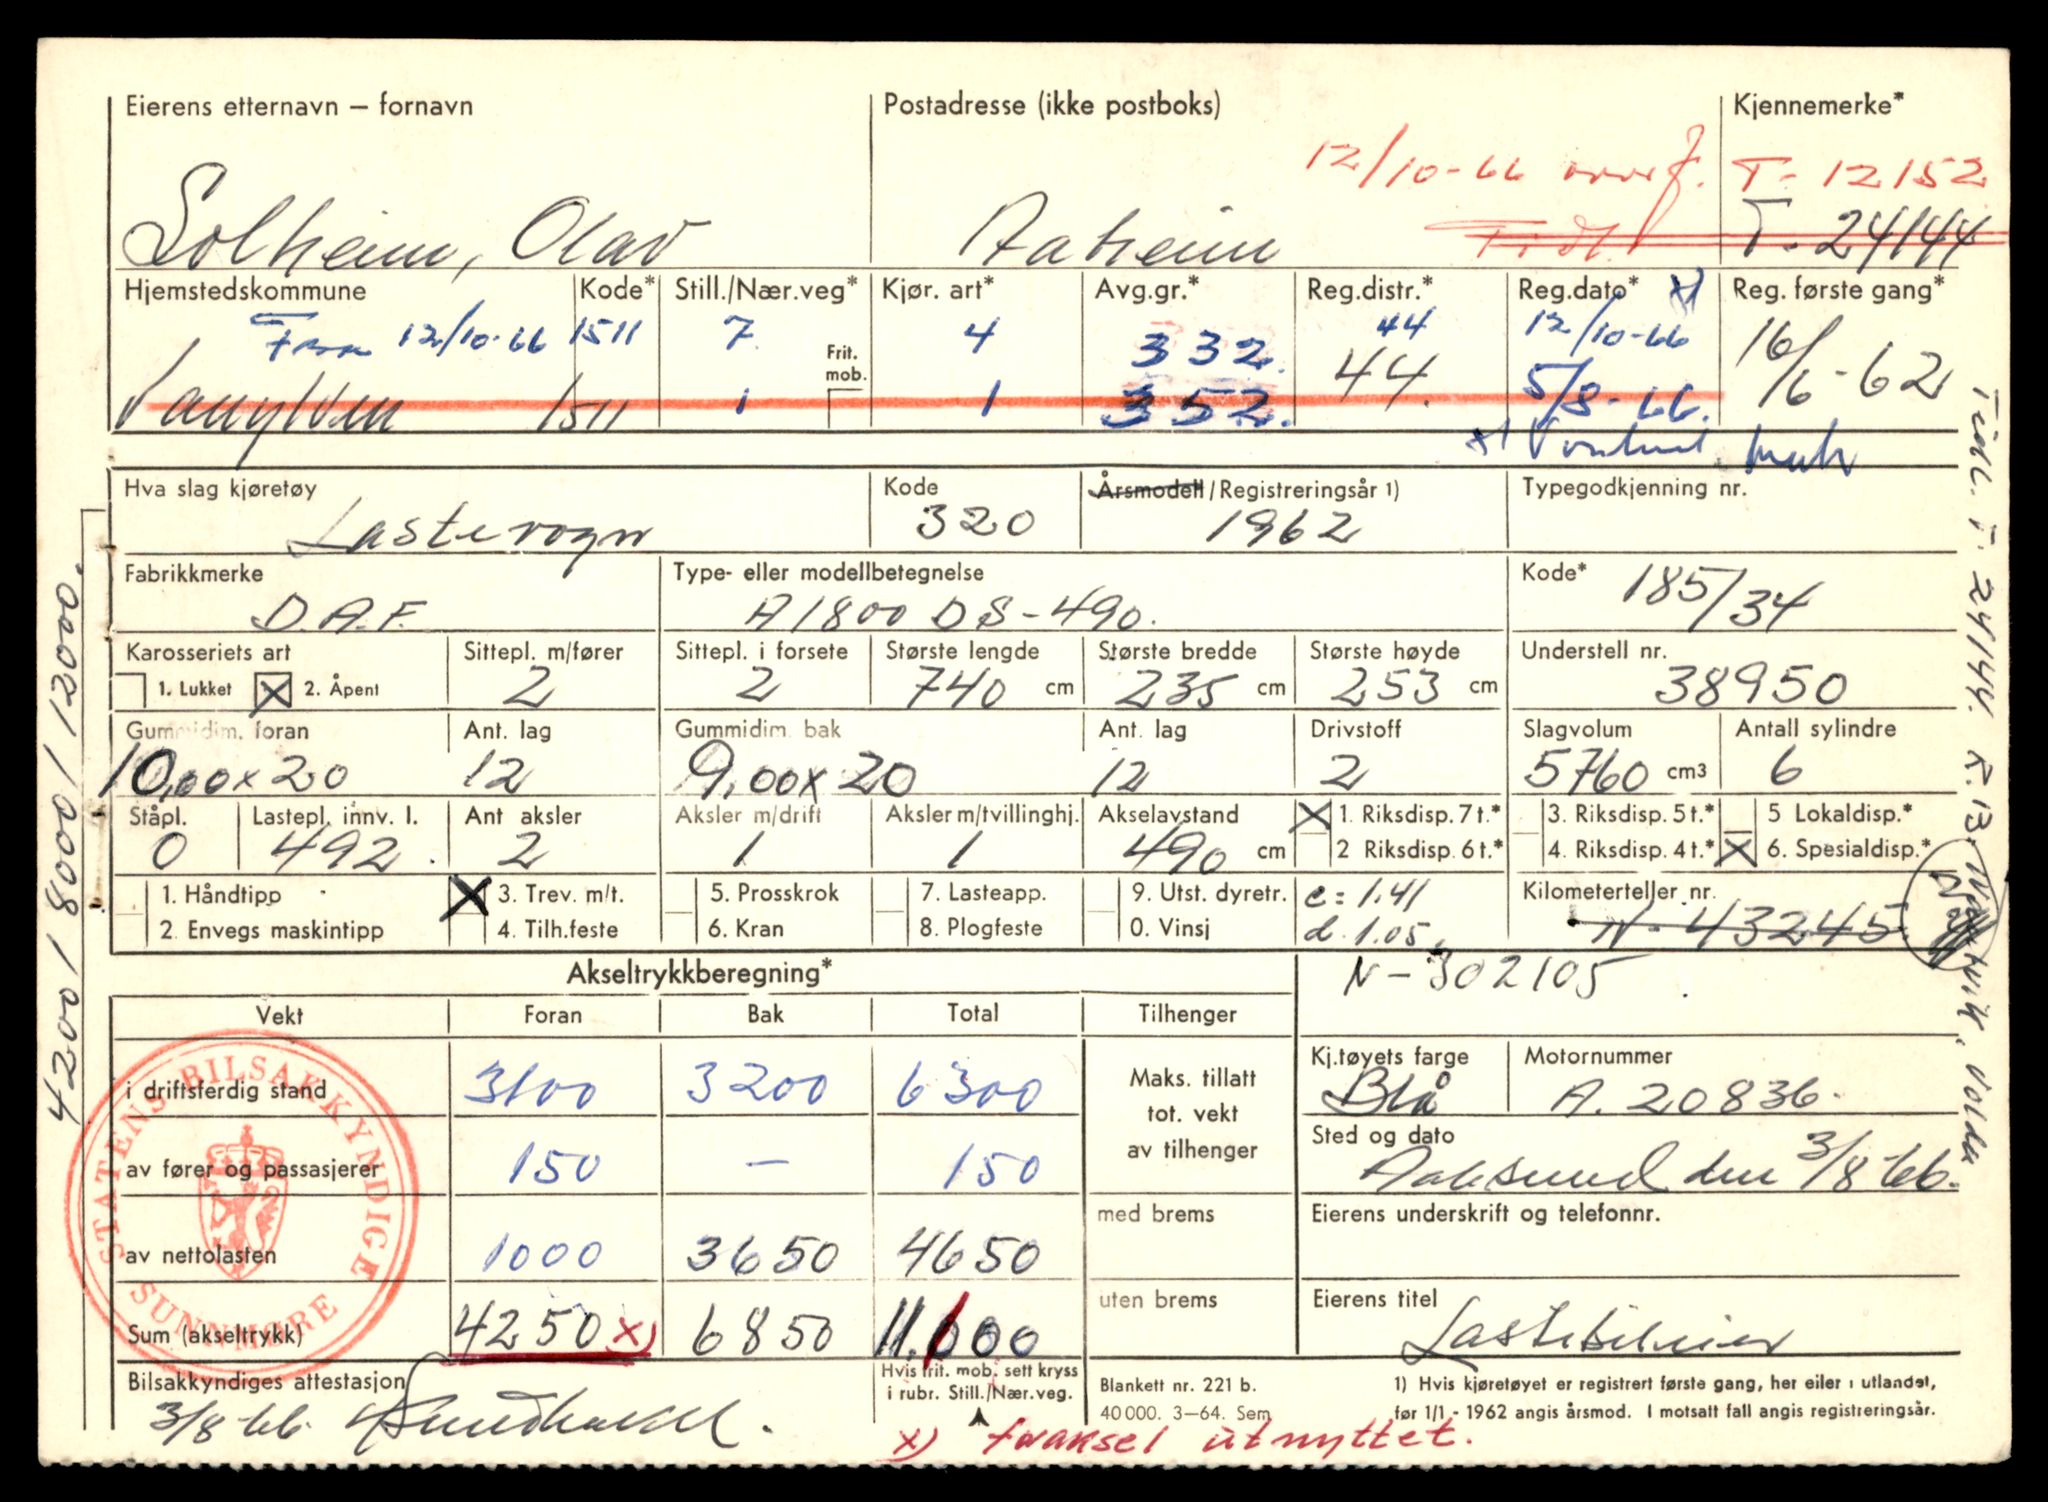 Eierens etternavn – fornavn
Postadresse (ikke postboks)
Kjennemerke*
12/10-66 overf.
T- 12152
Solheim, Olav
Aaheim
Tidl.
T- 24144
Hjemstedskommune
Kode*
Still./Nær.veg*
Kjør. art*
Avg.gr.*
Reg.distr.*
Reg.dato* x)
Reg. første gang*
Fra 12/10-66 1511
7
4
332.
44
12/10-66
16/6-62
Frit. mob.
Vanylven 1511
1
1
352.
44.
5/8-66.
x)
Hva slag kjøretøy
Lastevogn
Kode
320
Årsmodell/Registreringsår 1)
1962
Typegodkjenning nr.
Fabrikkmerke
D.A.F.
Type- eller modellbetegnelse
A1800 DS-490.
Kode*
185/34
Karosseriets art
1. Lukket X 2. Åpent
Sittepl. m/fører
2
Sittepl. i forsete
2
Største lengde
740 cm
Største bredde
235 cm
Største høyde
253 cm
Understell nr.
38950
Gummidim. foran
10,00x20
Ant. lag
12
Gummidim. bak
9,00x20
Ant. lag
12
Drivstoff
2
Slagvolum
5760 cm3
Antall sylindre
6
Ståpl.
0
Lastepl. innv. l.
492.
Ant aksler
2
Aksler m/drift
1
Aksler m/tvillinghj.
1
Akselavstand
490 cm
X 1. Riksdisp. 7 t.*
2 Riksdisp. 6 t.*
3. Riksdisp. 5 t.*
4. Riksdisp. 4 t.*
5 Lokaldisp.*
X 6. Spesialdisp.*
1. Håndtipp
2. Envegs maskintipp
X 3. Trev. m/t.
4. Tilh.feste
5. Prosskrok
6. Kran
7. Lasteapp.
8. Plogfeste
9. Utst. dyretr.
0. Vinsj
c = 1.41
d. 1.05.
Kilometerteller nr.
N- 43245
N-302105.
Akseltrykkberegning*
Vekt
Foran
Bak
Total
Tilhenger
i driftsferdig stand
3100
3200
6300
Maks. tillatt
tot. vekt
av tilhenger
av fører og passasjerer
150
–
150
med brems
av nettolasten
1000
3650
4650
uten brems
Sum (akseltrykk)
4250 x)
6850
11.000
Kj.tøyets farge
Blå
Motornummer
A. 20836.
Sted og dato
Aalesund den 3/8-66.
Eierens underskrift og telefonnr.
Eierens titel
Lastebileier
Bilsakkyndiges attestasjon
3/8-66
Hvis frit. mob. sett kryss
i rubr. Still./Nær.veg.
x) foraksel utnyttet.
Blankett nr. 221 b.
40 000. 3–64. Sem
1) Hvis kjøretøyet er registrert første gang, her eller i utlandet,
før 1/1 - 1962 angis årsmod. I motsatt fall angis registreringsår.
STATENS BILSAKKYNDIGE
SUNNMØRE
4200 / 8000 / 12000.
Tidl. T- 24144. Volda